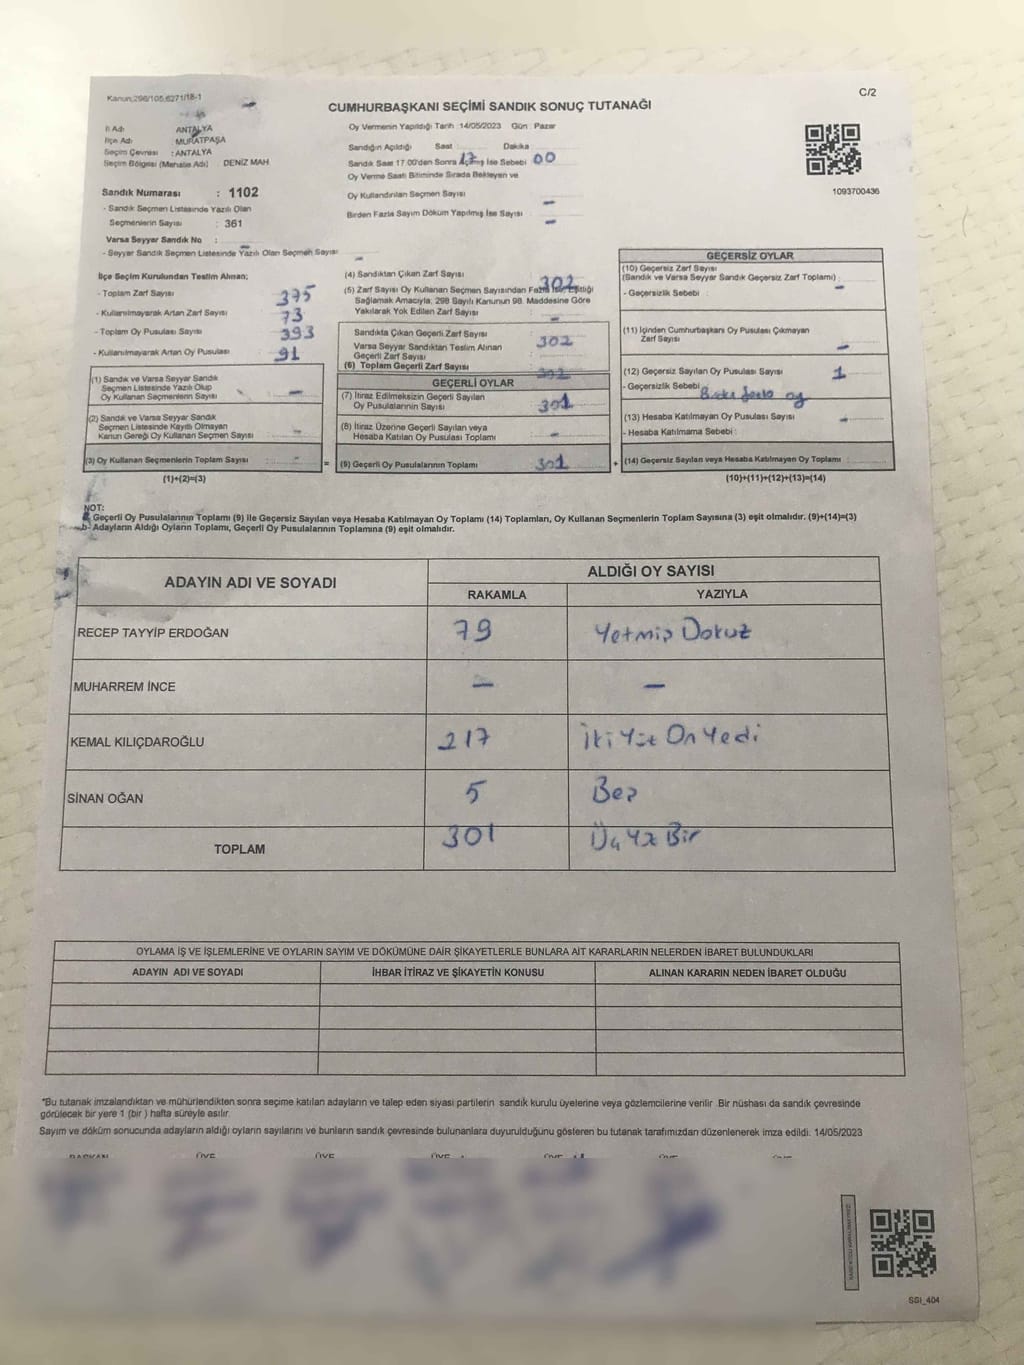 Kanun:298/105,6271/18-1
C/2
CUMHURBAŞKANI SEÇİMİ SANDIK SONUÇ TUTANAĞI
İl Adı ANTALYA
İlçe Adı MURATPAŞA
Seçim Çevresi : ANTALYA
Seçim Bölgesi (Mahalle Adı) DENİZ MAH.
Sandık Numarası : 1102
- Sandık Seçmen Listesinde Yazılı Olan
Seçmenlerin Sayısı : 361
Varsa Seyyar Sandık No :
- Seyyar Sandık Seçmen Listesinde Yazılı Olan Seçmen Sayısı
Oy Vermenin Yapıldığı Tarih :14/05/2023 Gün : Pazar
Sandığın Açıldığı Saat 17 Dakika 00
Sandık Saat 17.00'den Sonra Açılmış İse Sebebi
Oy Verme Saati Bitiminde Sırada Bekleyen ve
Oy Kullandırılan Seçmen Sayısı –
Birden Fazla Sayım Döküm Yapılmış İse Sayısı –
1093700436
İlçe Seçim Kurulundan Teslim Alınan;
- Toplam Zarf Sayısı 375
- Kullanılmayarak Artan Zarf Sayısı 73
- Toplam Oy Pusulası Sayısı 393
- Kullanılmayarak Artan Oy Pusulası 91
(1) Sandık ve Varsa Seyyar Sandık
Seçmen Listesinde Yazılı Olup
Oy Kullanan Seçmenlerin Sayısı –
(2) Sandık ve Varsa Seyyar Sandık
Seçmen Listesinde Kayıtlı Olmayan
Kanun Gereği Oy Kullanan Seçmen Sayısı –
(3) Oy Kullanan Seçmenlerin Toplam Sayısı : –
(1)+(2)=(3)
(4) Sandıktan Çıkan Zarf Sayısı 302
(5) Zarf Sayısı Oy Kullanan Seçmen Sayısından Fazla İse, Eşitliği
Sağlamak Amacıyla, 298 Sayılı Kanunun 98. Maddesine Göre
Yakılarak Yok Edilen Zarf Sayısı –
Sandıkta Çıkan Geçerli Zarf Sayısı 302
Varsa Seyyar Sandıktan Teslim Alınan
Geçerli Zarf Sayısı
(6) Toplam Geçerli Zarf Sayısı 302
GEÇERLİ OYLAR
(7) İtiraz Edilmeksizin Geçerli Sayılan
Oy Pusulalarının Sayısı 301
(8) İtiraz Üzerine Geçerli Sayılan veya
Hesaba Katılan Oy Pusulası Toplamı –
= (9) Geçerli Oy Pusulalarının Toplamı 301
GEÇERSİZ OYLAR
(10) Geçersiz Zarf Sayısı
(Sandık ve Varsa Seyyar Sandık Geçersiz Zarf Toplamı) –
- Geçersizlik Sebebi :
(11) İçinden Cumhurbaşkanı Oy Pusulası Çıkmayan
Zarf Sayısı –
(12) Geçersiz Sayılan Oy Pusulası Sayısı 1
- Geçersizlik Sebebi oy
(13) Hesaba Katılmayan Oy Pusulası Sayısı –
- Hesaba Katılmama Sebebi :
+ (14) Geçersiz Sayılan veya Hesaba Katılmayan Oy Toplamı
(10)+(11)+(12)+(13)=(14)
NOT:
Geçerli Oy Pusulalarının Toplamı (9) ile Geçersiz Sayılan veya Hesaba Katılmayan Oy Toplamı (14) Toplamları, Oy Kullanan Seçmenlerin Toplam Sayısına (3) eşit olmalıdır. (9)+(14)=(3)
b- Adayların Aldığı Oyların Toplamı, Geçerli Oy Pusulalarının Toplamına (9) eşit olmalıdır.
ADAYIN ADI VE SOYADI
ALDIĞI OY SAYISI
RAKAMLA YAZIYLA
RECEP TAYYİP ERDOĞAN 79 Yetmiş Dokuz
MUHARREM İNCE – –
KEMAL KILIÇDAROĞLU 217 İki Yüz On Yedi
SİNAN OĞAN 5 Beş
TOPLAM 301 Üç Yüz Bir
OYLAMA İŞ VE İŞLEMLERİNE VE OYLARIN SAYIM VE DÖKÜMÜNE DAİR ŞİKAYETLERLE BUNLARA AİT KARARLARIN NELERDEN İBARET BULUNDUKLARI
ADAYIN ADI VE SOYADI İHBAR İTİRAZ VE ŞİKAYETİN KONUSU ALINAN KARARIN NEDEN İBARET OLDUĞU
*Bu tutanak imzalandıktan ve mühürlendikten sonra seçime katılan adayların ve talep eden siyasi partilerin sandık kurulu üyelerine veya gözlemcilerine verilir. Bir nüshası da sandık çevresinde
görülecek bir yere 1 (bir ) hafta süreyle asılır.
Sayım ve döküm sonucunda adayların aldığı oyların sayılarını ve bunların sandık çevresinde bulunanlara duyurulduğunu gösteren bu tutanak tarafımızdan düzenlenerek imza edildi. 14/05/2023
BAŞKAN ÜYE ÜYE ÜYE ÜYE ÜYE ÜYE
SGI_404